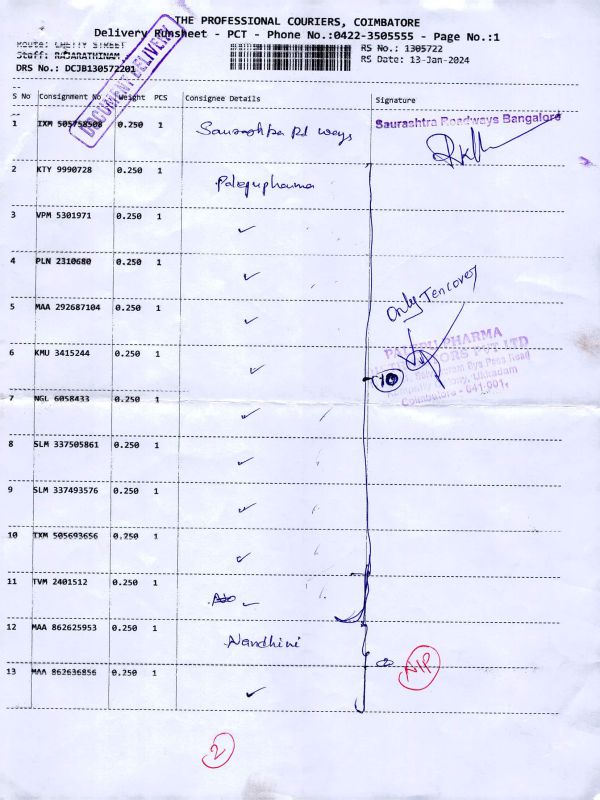 THE PROFESSIONAL COURIERS, COIMBATORE
Delivery Runsheet - PCT - Phone No.:0422-3505555 - Page No.:1
Route: CHETTY STREET
Staff: RAJARATHINAM
DRS No.: DCJB130572201
RS No.: 1305722
RS Date: 13-Jan-2024
DOCUMENT DELIVERY
S No Consignment No Weight PCS Consignee Details Signature
1 IXM 505758508 0.250 1 Saurashtra Rd ways Saurashtra Roadways Bangalore
2 KTY 9990728 0.250 1 Palepupharma
3 VPM 5301971 0.250 1 ✓
4 PLN 2310680 0.250 1 ✓
Only Ten cover
5 MAA 292687104 0.250 1 ✓
PALEPU PHARMA
PVT LTD
6 KMU 3415244 0.250 1 ✓
10
Colony, Ukkadam
Coimbatore - 641 001.
7 NGL 6058433 0.250 1 ✓
8 SLM 337505861 0.250 1 ✓
9 SLM 337493576 0.250 1 ✓
10 IXM 505693656 0.250 1 ✓
11 TVM 2401512 0.250 1 ✓
12 MAA 862625953 0.250 1 Nandhini
NIP
13 MAA 862636856 0.250 1 ✓
2